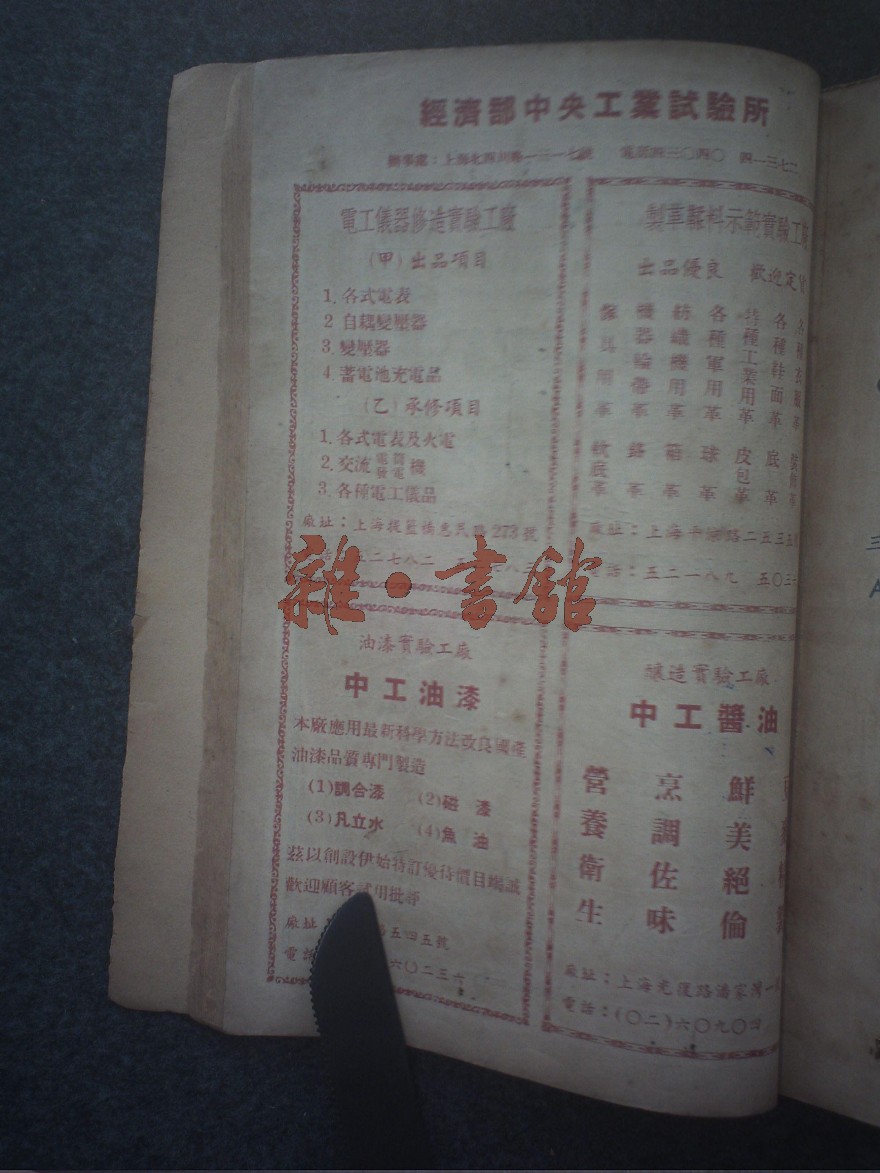 經濟部中央工業試驗所
辦事處：上海北四川路一三一七號 電話四三〇四〇 四一三七二
電工儀器修造實驗工廠
(甲)出品項目
1.各式電表
2 自耦變壓器
3.變壓器
4.蓄電池充電器
(乙)承修項目
1.各式電表及火電
2.交流電筒發電機
3.各種電工儀品
廠址：上海提籃橋惠民路273號
五二七八二
製革鞣料示範實驗工
出品優良 歡迎定
各種衣
各種鞋面革
特種工業用革
各種軍用革
紡織機用革
機器輪帶革
傢具用革
底革
皮包革
球革
箱革
軟底革
廠址：上海平涼路二五三五
話：五二一八九 五〇三
雜·書館
油漆實驗工廠
中工油漆
本廠應用最新科學方法改良國產
油漆品質專門製造
(1)調合漆 (2)磁漆
(3)凡立水 (4)魚油
茲以創設伊始特訂優待價目竭誠
歡迎顧客試用批評
廠址 五四五號
電話 六〇二三六
釀造實驗工廠
中工醬油
鮮美絕倫
烹調佐味
營養衛生
廠址：上海光復路潘家灣一
電話：(〇二)六〇九〇四